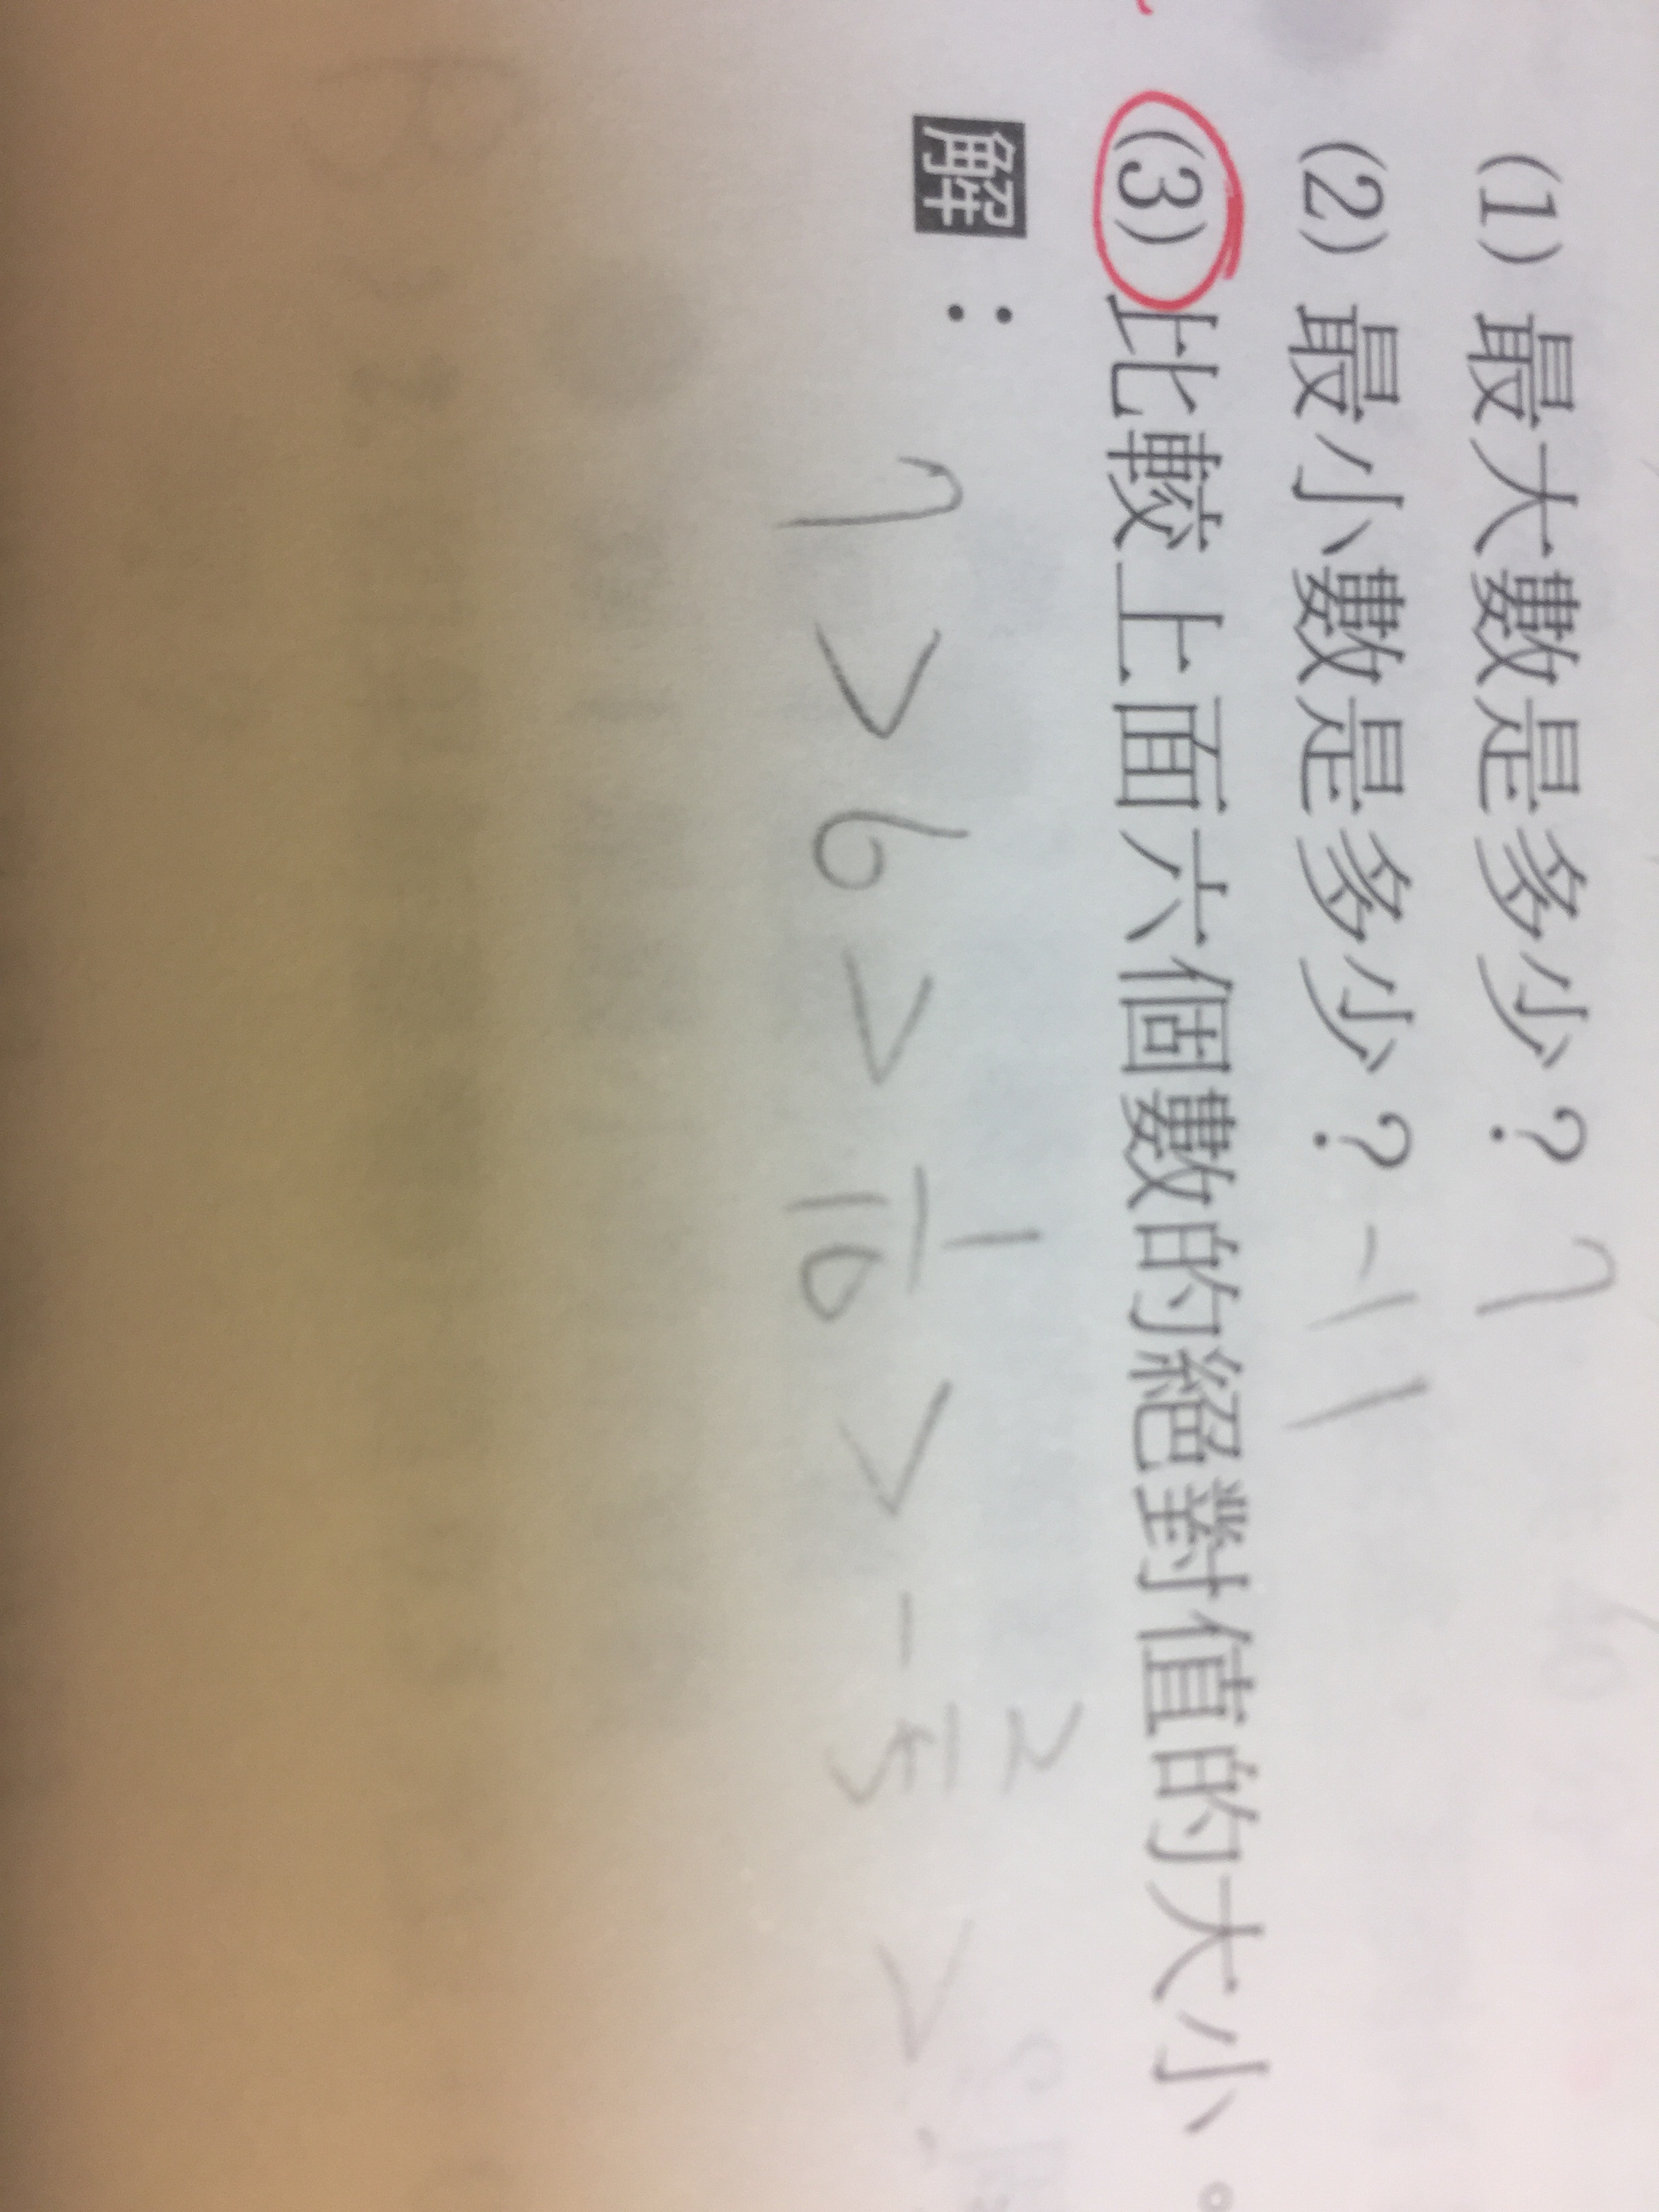 (1) 最大數是多少？ 7
(2) 最小數是多少？ -11
(3) 比較上面六個數的絕對值的大小。
解：7 > 6 > 1/10 > - 2/5 >